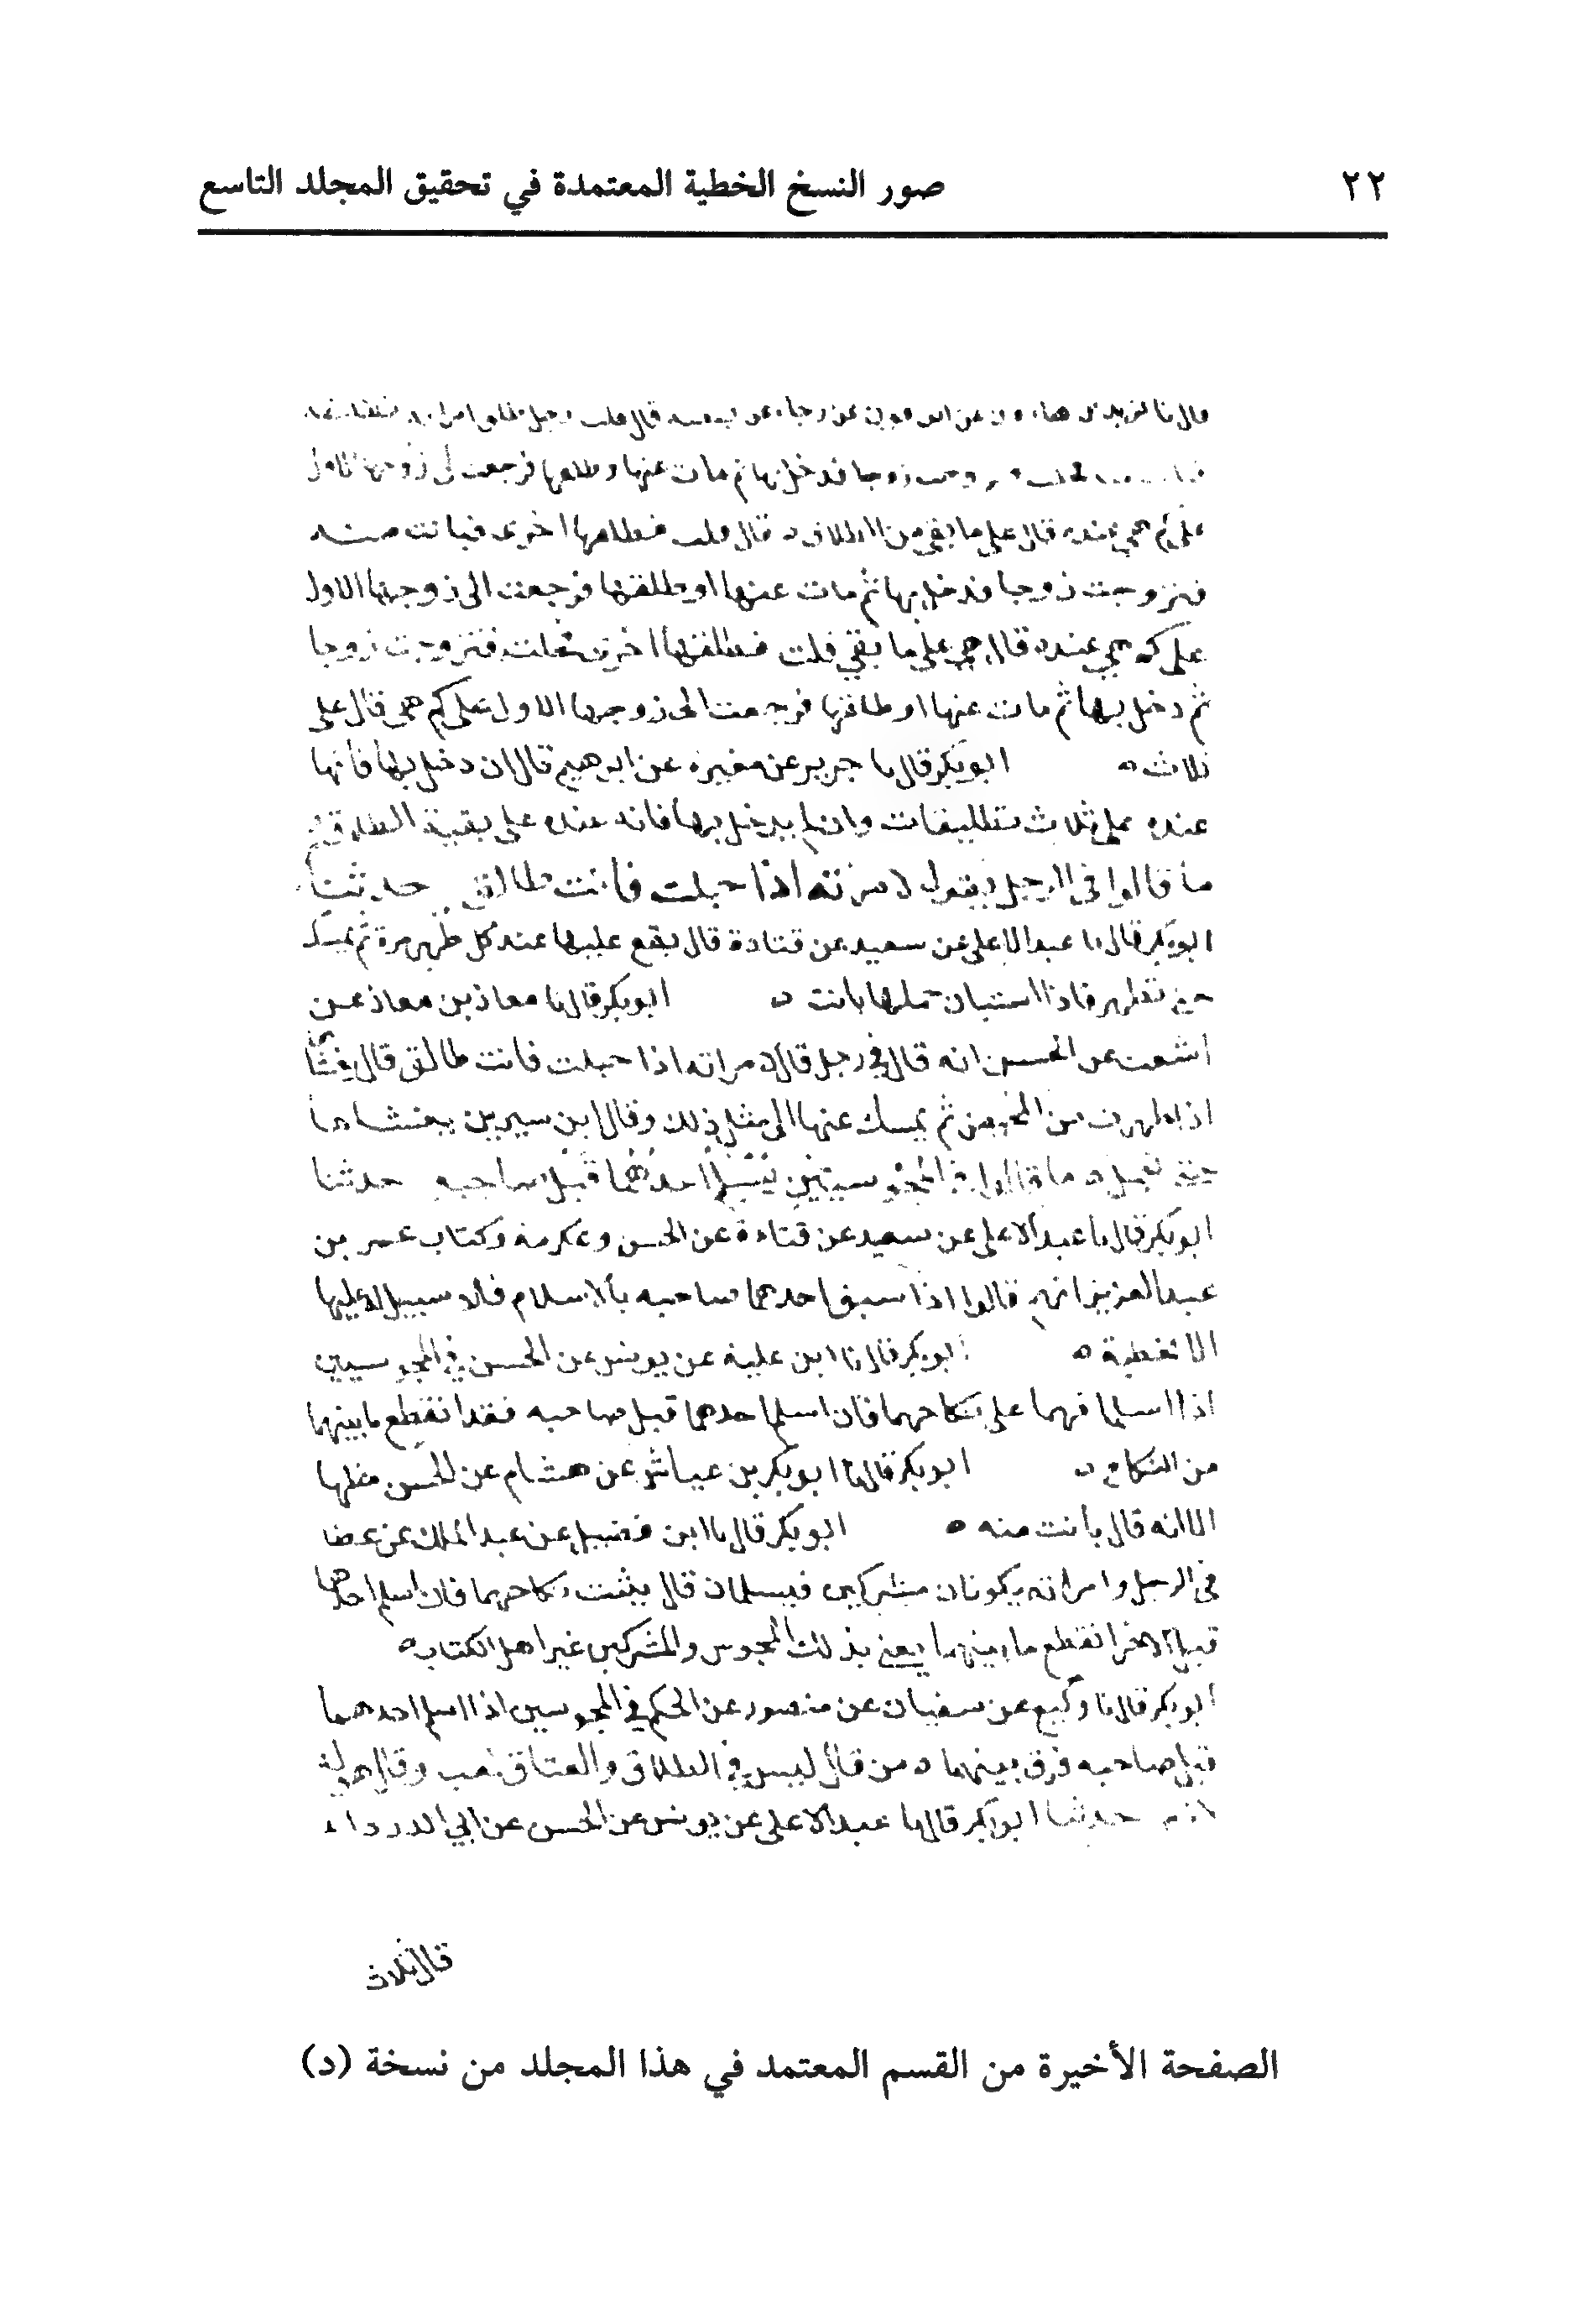 ٢٢
صور النسخ الخطية المعتمدة في تحقيق المجلد التاسع
قال نا يزيد بن هارون عن عن رجاء عن قال قلت رجل طلق امراته
زوجا فدخل بها ثم مات عنها وطلقها فرجعت الى زوجها الاول
على كم هي عنده قال على ما بقي من الطلاق قال قلت فطلقها اخرى فبانت منه
فتزوجت زوجا فدخل بها ثم مات عنها او طلقها فرجعت الى زوجها الاول
على كم هي عنده قال هي على ما بقي قلت فطلقها اخرى فتزوجت زوجا
ثم دخل بها ثم مات عنها او طلقها فرجعت الى زوجها الاول على كم هي قال على
ثلاث ه ابو بكر قال نا جرير عن مغيرة عن ابرهيم قال ان دخل بها فانها
عنده على ثلاث تطليقات وان لم يدخل بها فانه عنده على بقية الطلاق
ما قالوا في الرجل يقول لامرته اذا حبلت فانت طالق حدثنا
ابو بكر قال نا عبد الاعلى عن سعيد عن قتادة قال يقع عليها عند كل طهر مرة ثم يمسك
حتى تطهر فاذا استبان حملها بانت ه ابو بكر قال نا معاذ بن معاذ عن
اشعث عن الحسن انه قال في رجل قال لامراته اذا حبلت فانت طالق قال يغشاها
اذا طهرت من المحيض ثم يمسك عنها الى مثل ذلك وقال ابن سيرين يغشاها
حتى تحمل ه ما قالوا في المجوسيين يسلم احدهما قبل صاحبه حدثنا
ابو بكر قال نا عبد الاعلى عن سعيد عن قتادة عن الحسن وعكرمة وكتاب عمر بن
عبد العزيز انهم قالوا اذا سبق احدهما صاحبه بالاسلام فلا سبيل له عليها
الا بخطبة ه ابو بكر قال نا ابن علية عن يونس عن الحسن في المجوسيين
اذا اسلما فهما على نكاحهما فان اسلم احدهما قبل صاحبه فقد انقطع ما بينهما
من النكاح ه ابو بكر قال نا ابو بكر بن عياش عن هشام عن الحسن مثلها
الا انه قال بانت منه ه ابو بكر قال نا ابن فضيل عن عبد الملك عن عطا
في الرجل وامراته يكونان مشركين فيسلمان قال يثبت نكاحهما فان اسلم احدهما
قبل الاخر انقطع ما بينهما يعني بذلك المجوس والمشركين غير اهل الكتاب ه
ابو بكر قال نا وكيع عن سفيان عن منصور عن الحكم في المجوسيين اذا اسلم احدهما
قبل صاحبه فرق بينهما ه من قال ليس في الطلاق والعتاق لعب وقال هو له
لازم حدثنا ابو بكر قال نا عبد الاعلى عن يونس عن الحسن عن ابي الدرداء
قال ثلاث
الصفحة الأخيرة من القسم المعتمد في هذا المجلد من نسخة (د)